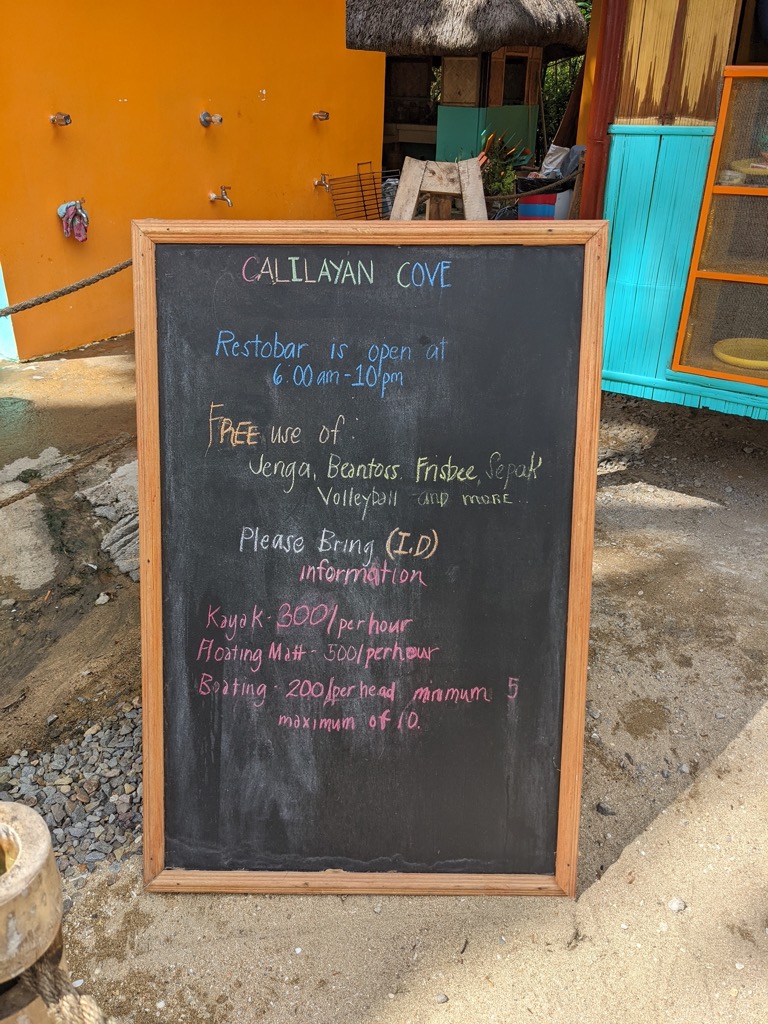 CALILAYAN COVE
Restobar is open at
6.00 am - 10 pm
FREE use of :
Jenga, Beantoss. Frisbee, Sepak
Volleyball and more..
Please Bring (I.D)
information
Kayak - 300/per hour
Floating Matt - 500/per hour
Boating - 200/per head minimum 5
maximum of 10.